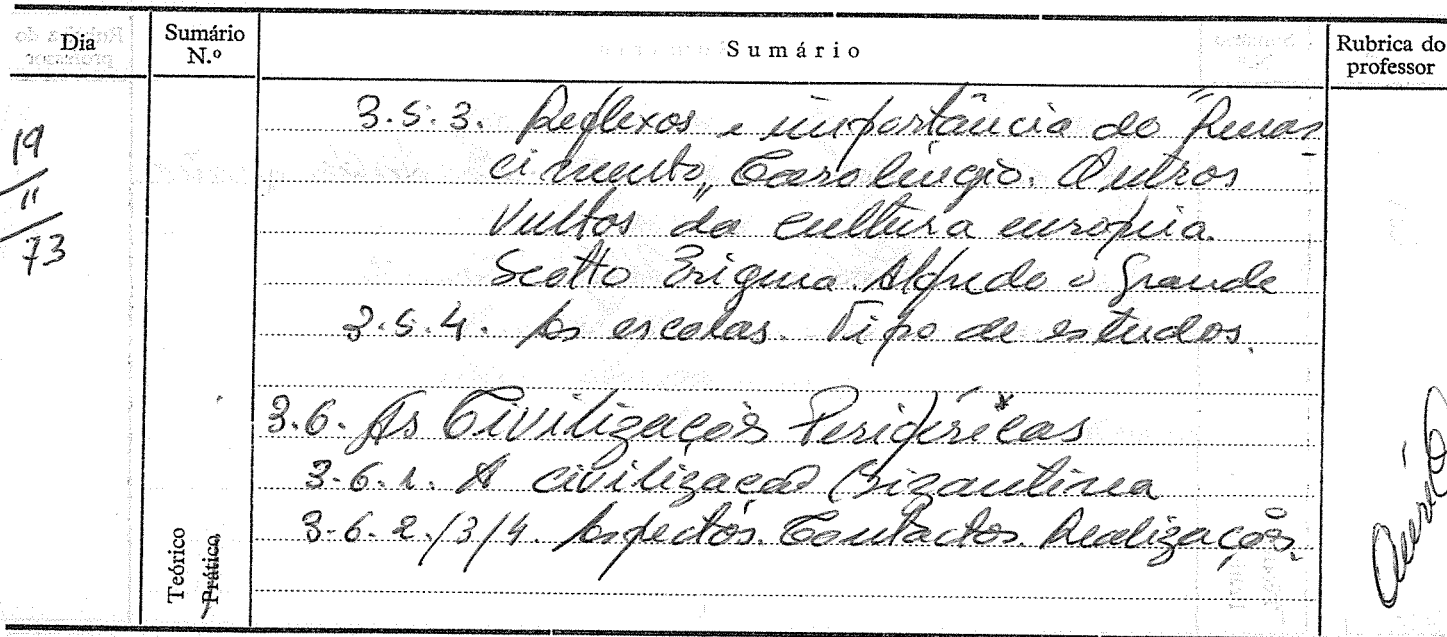 Dia
Sumário N.º
Sumário
Rubrica do professor
19/11/73
3.5.3. Reflexos e importância do "Renas
cimento" Carolíngio. Outros
vultos da cultura europeia.
Scotto Erígena. Alfredo o Grande
3.5.4. As escolas. Tipo de estudos.
3.6. As Civilizações Periféricas
3.6.1. A civilização Bizantina
3.6.2./3/4. Aspectos. Contactos. Realizações.
Teórico
Prático